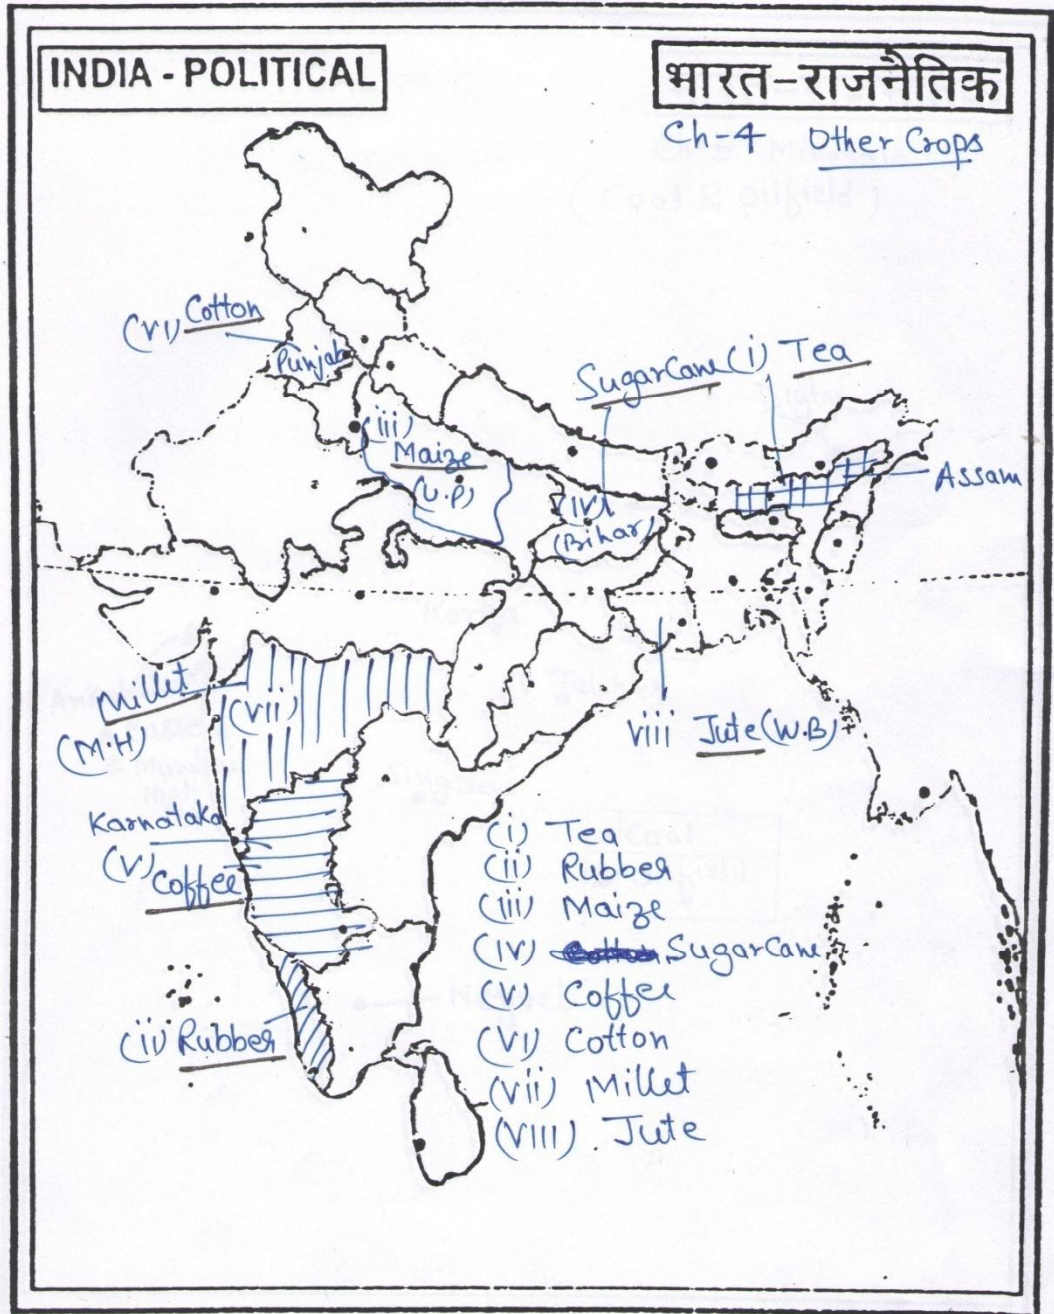 INDIA - POLITICAL
भारत-राजनैतिक
Ch-4 Other Crops
(VI) Cotton
Punjab
SugarCane (i) Tea
(iii)
Maize
(U.P)
Assam
(IV)
(Bihar)
Millet
(vii)
(M.H)
viii Jute (W.B)
Karnataka
(V) Coffee
(ii) Rubber
(i) Tea
(ii) Rubber
(iii) Maize
(IV) SugarCane
(V) Coffee
(VI) Cotton
(vii) Millet
(VIII) Jute